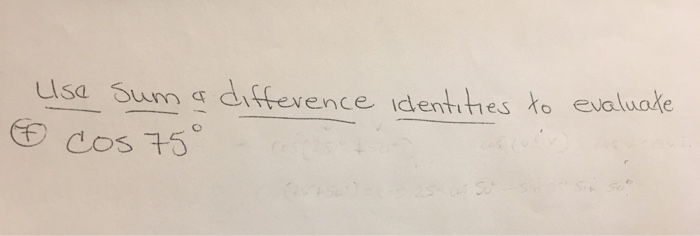 Use Sum & difference identities to evaluate
⑦ cos 75°